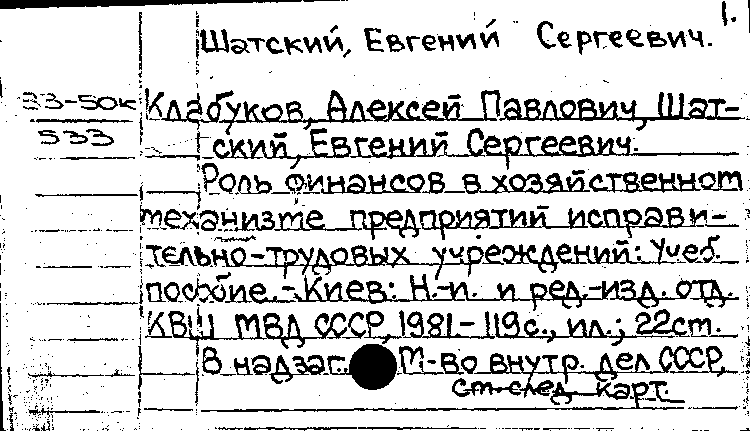 1.
Шатский, Евгений Сергеевич.
33-50к Клабуков, Алексей Павлович, Шат-
533 ский, Евгений Сергеевич.
Роль финансов в хозяйственном
механизме предприятий исправи-
тельно-трудовых учреждений: Учеб.
пособие.-Киев: Н.-и. и ред.-изд. отд.
КВШ МВД СССР, 1981-119с., ил.; 22см.
В надзаг. М-во внутр. дел СССР,
см. след. карт.